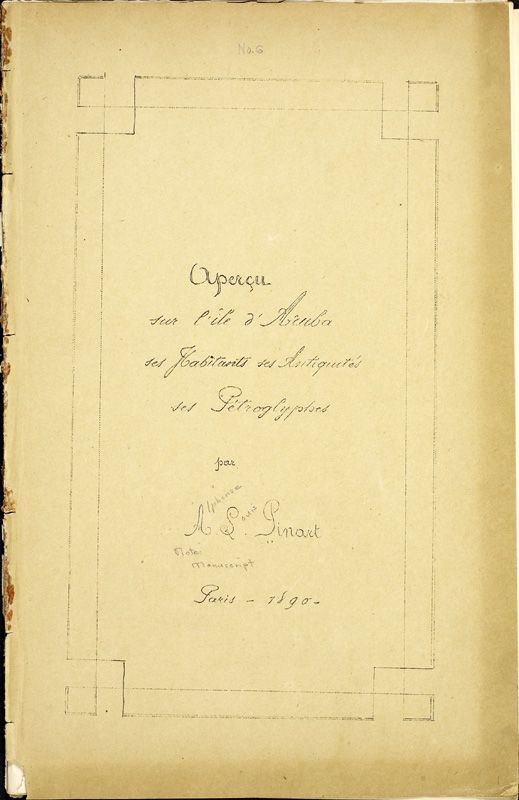 No. 6
Aperçu
sur l'île d'Aruba
ses Habitants ses Antiquités
ses Pétroglyphes
par
Alphonse Louis Pinart
Note:
Manuscript
Paris - 1890-